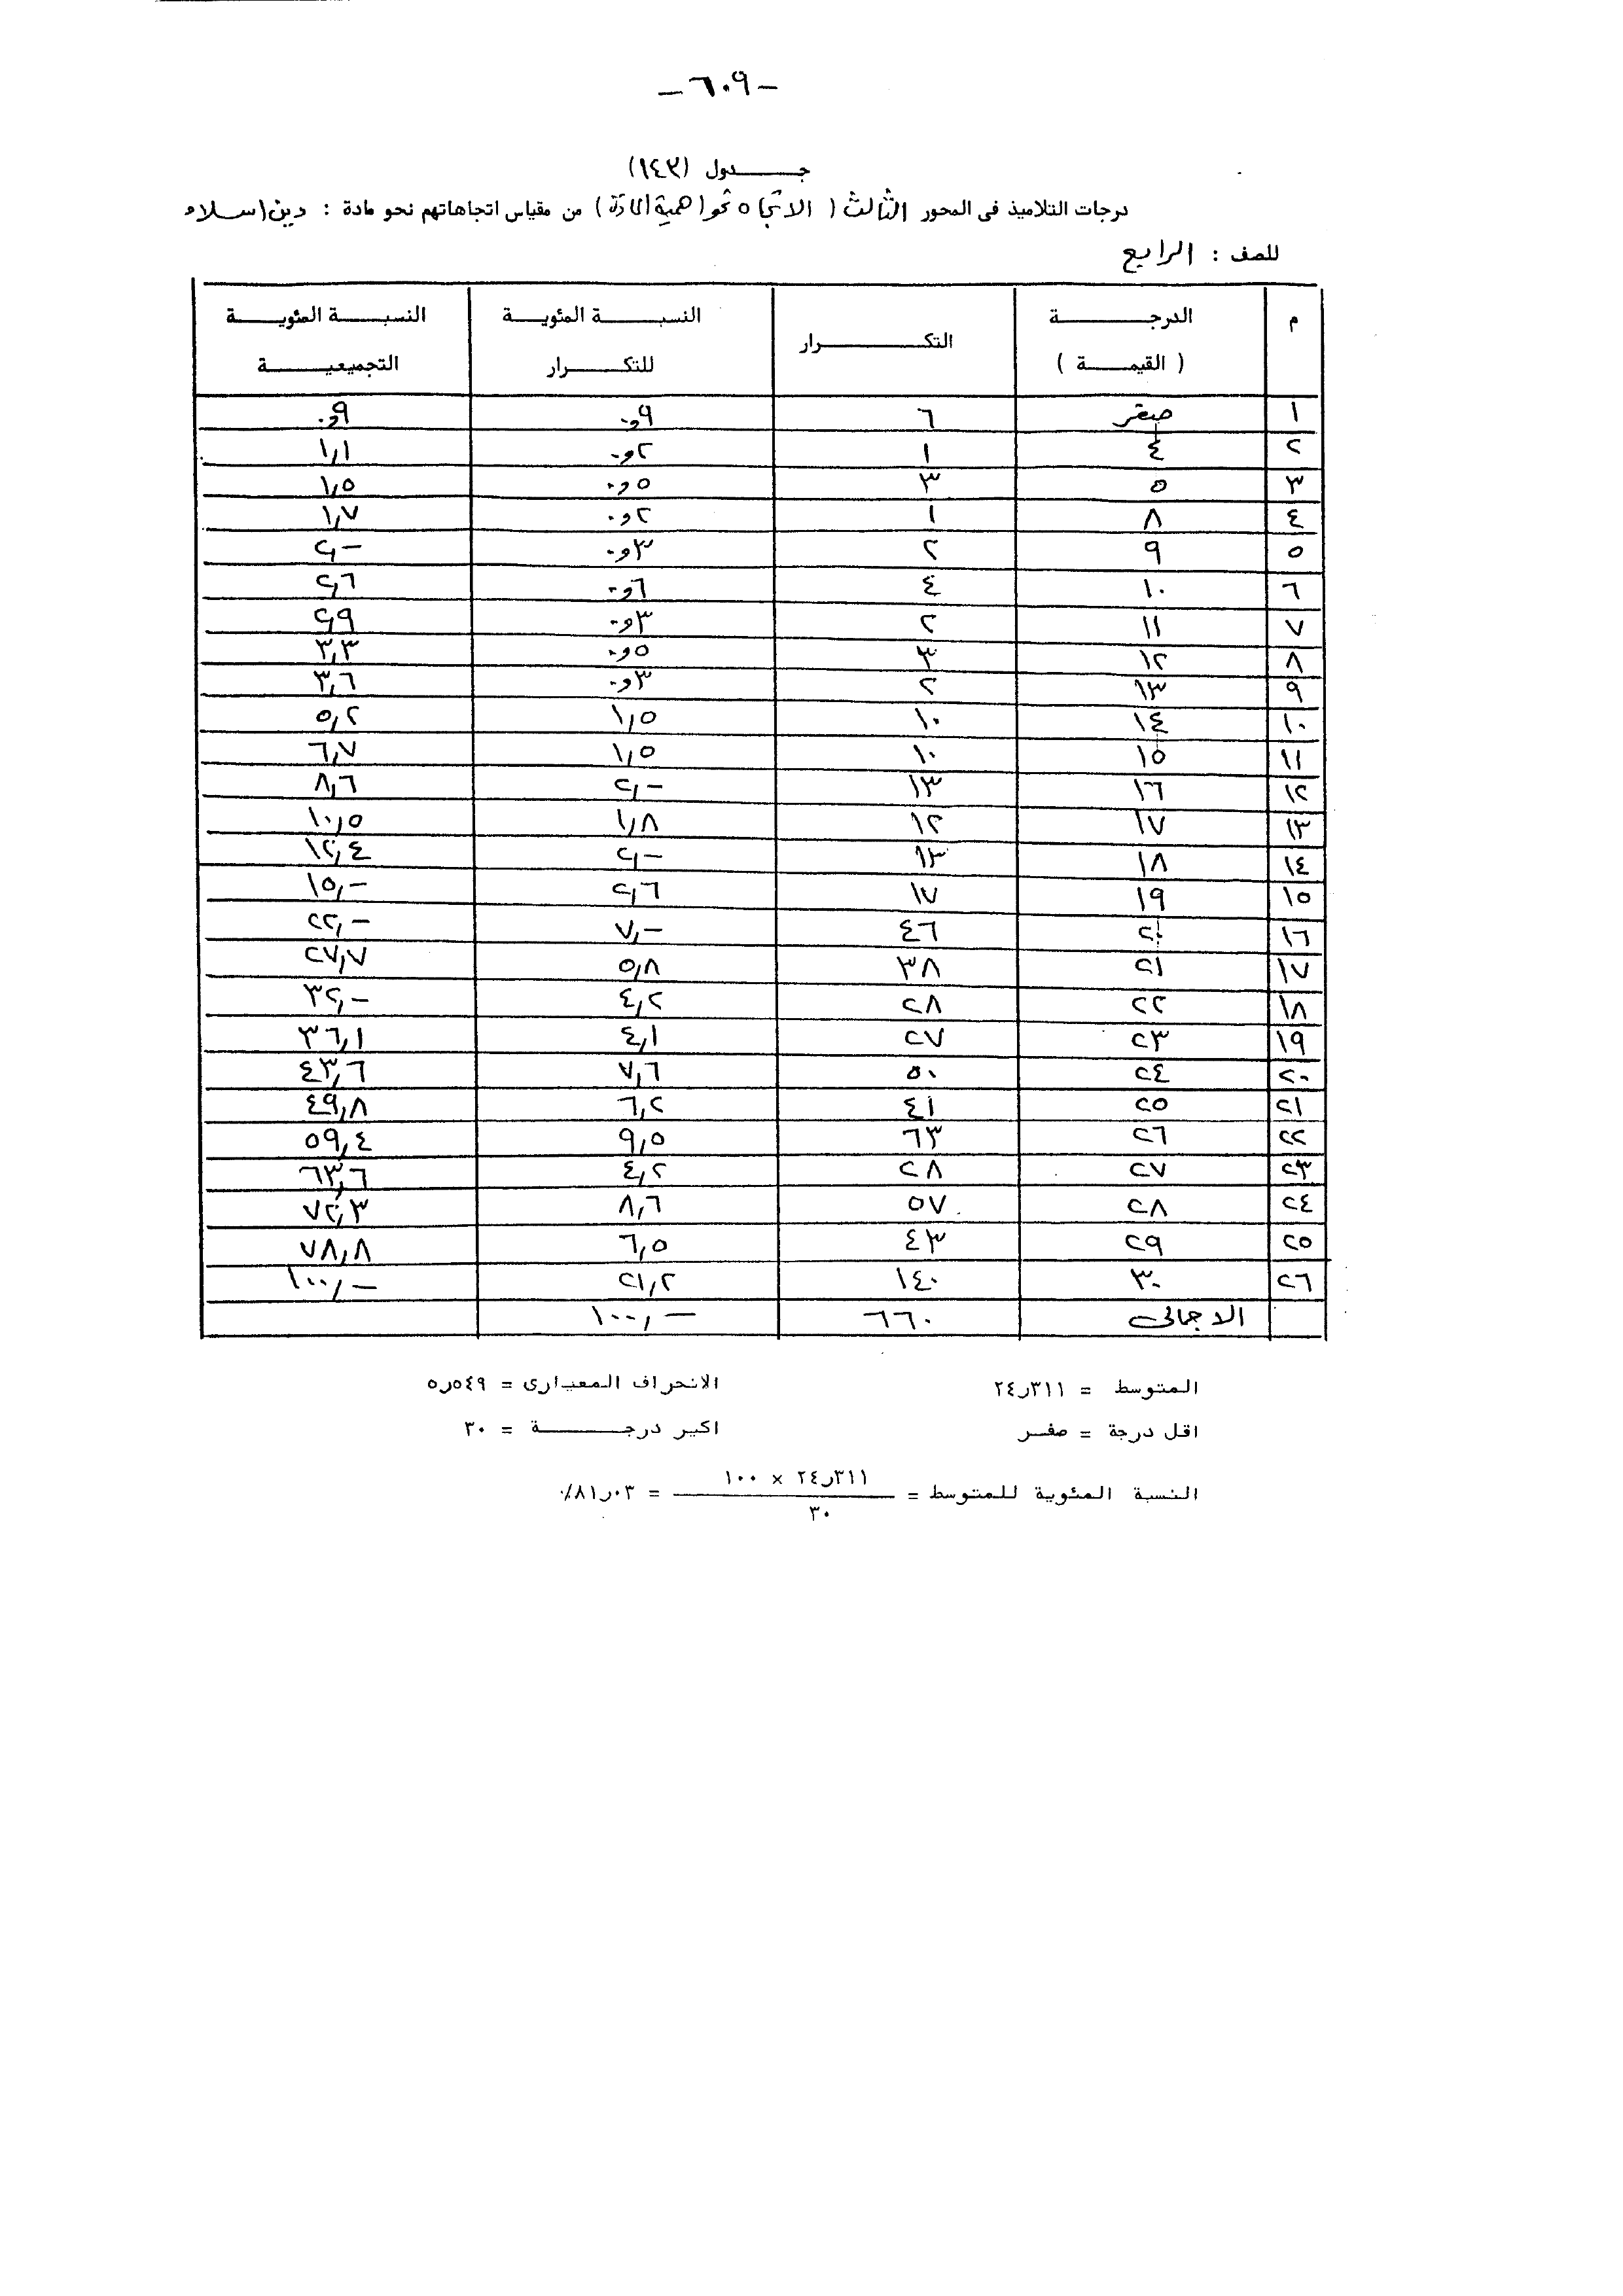 -٦٠٩-
جـــدول (١٤٣)
درجات التلاميذ فى المحور الثالث ( الاتجاه نحو اهمية المادة ) من مقياس اتجاهاتهم نحو مادة : دين اسلام
للصف : الرابع
م الدرجـة ( القيمـة ) التكـرار النسبـة المئويـة للتكـرار النسبـة المئويـة التجميعيـة
١ صفر ٦ ٠و٩ ٠و٩
٢ ٤ ١ ٠و٢ ١,١
٣ ٥ ٣ ٠و٥ ١,٥
٤ ٨ ١ ٠و٢ ١,٧
٥ ٩ ٢ ٠و٣ ٢,-
٦ ١٠ ٤ ٠و٦ ٢,٦
٧ ١١ ٢ ٠و٣ ٢,٩
٨ ١٢ ٣ ٠و٥ ٣,٣
٩ ١٣ ٢ ٠و٣ ٣,٦
١٠ ١٤ ١٠ ١,٥ ٥,٢
١١ ١٥ ١٠ ١,٥ ٦,٧
١٢ ١٦ ١٣ ٢,- ٨,٦
١٣ ١٧ ١٢ ١,٨ ١٠,٥
١٤ ١٨ ١٣ ٢,- ١٢,٤
١٥ ١٩ ١٧ ٢,٦ ١٥,-
١٦ ٢٠ ٤٦ ٧,- ٢٢,-
١٧ ٢١ ٣٨ ٥,٨ ٢٧,٧
١٨ ٢٢ ٢٨ ٤,٢ ٣٢,-
١٩ ٢٣ ٢٧ ٤,١ ٣٦,١
٢٠ ٢٤ ٥٠ ٧,٦ ٤٣,٦
٢١ ٢٥ ٤١ ٦,٢ ٤٩,٨
٢٢ ٢٦ ٦٣ ٩,٥ ٥٩,٤
٢٣ ٢٧ ٢٨ ٤,٢ ٦٣,٦
٢٤ ٢٨ ٥٧ ٨,٦ ٧٢,٣
٢٥ ٢٩ ٤٣ ٦,٥ ٧٨,٨
٢٦ ٣٠ ١٤٠ ٢١,٢ ١٠٠,-
الاجمالى ٦٦٠ ١٠٠,-
المتوسط = ٣١١ر٢٤ الانحراف المعيارى = ٥٤٩ر٥
اقل درجة = صفـر اكبر درجـــة = ٣٠
النسبة المئوية للمتوسط = ٣١١ر٢٤ × ١٠٠ = ٠٣ر٨١٪
٣٠